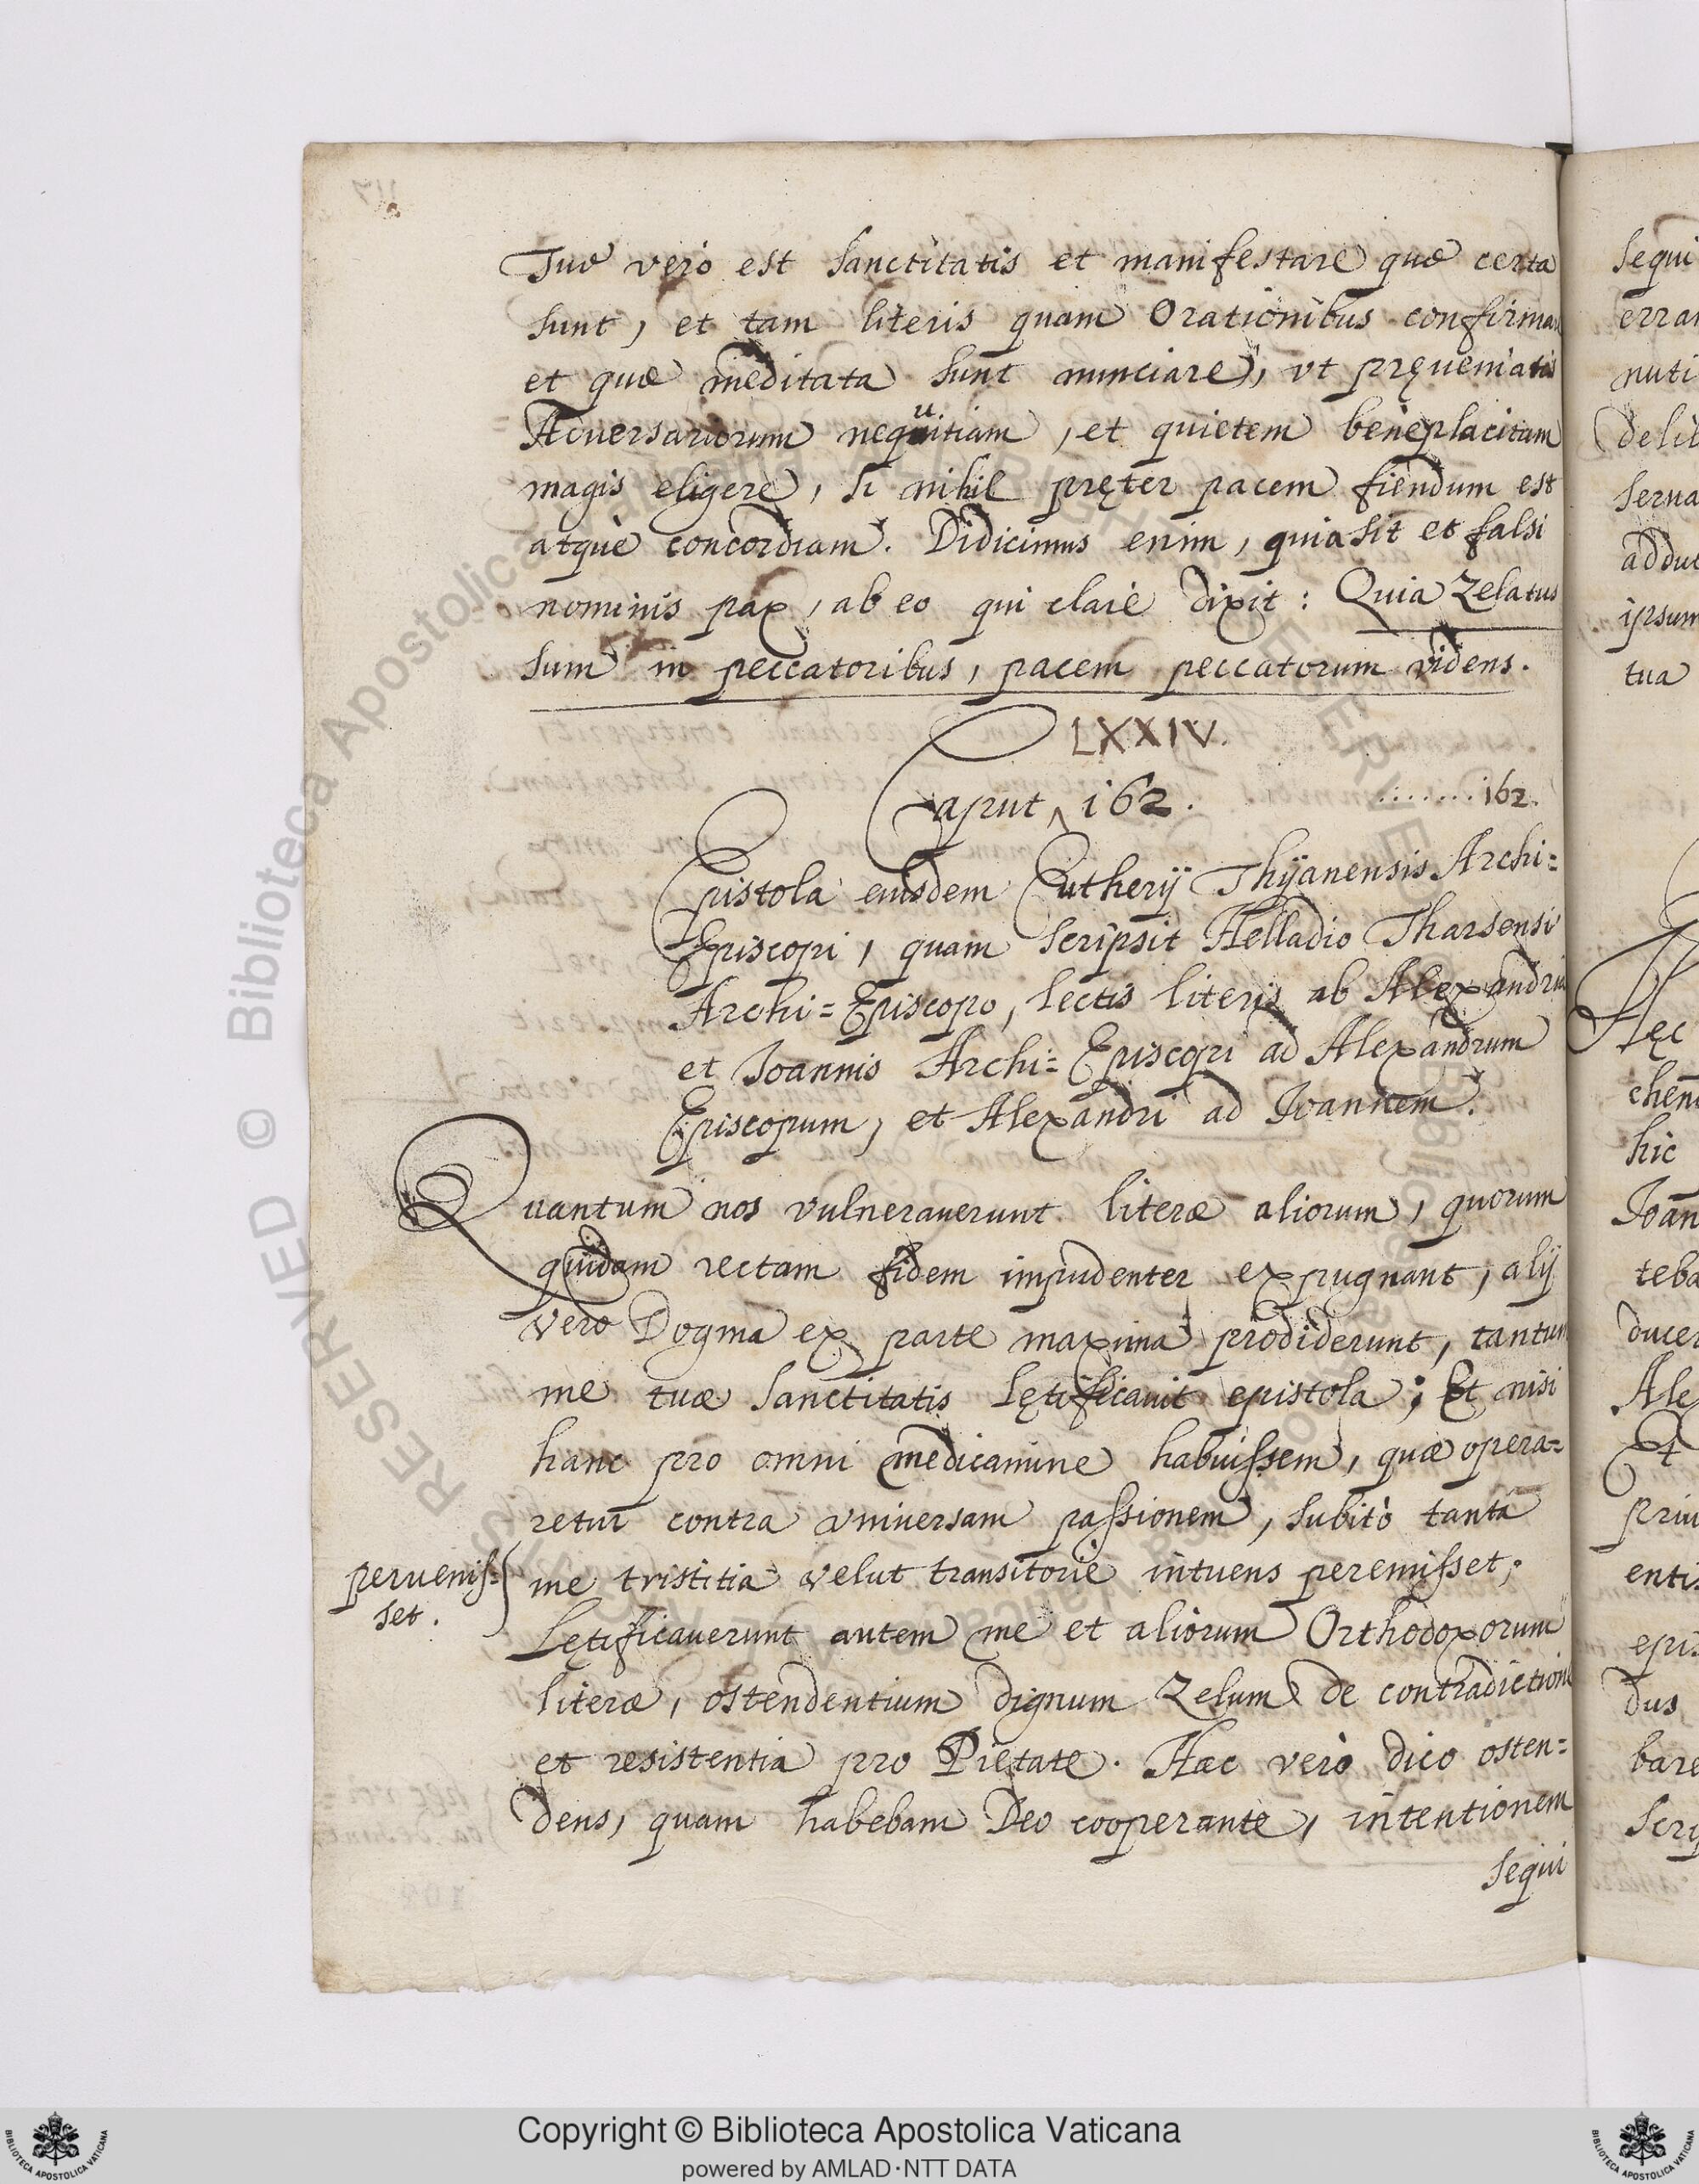 Tuæ verò est sanctitatis et manifestare quæ certa
sunt, et tam literis quam Orationibus confirmare
et quæ meditata sunt nunciare, vt pręueniatis
Aduersariorum nequitiam, et quietem beneplacitam
magis eligere, si nihil pręter pacem fiendum est
atque concordiam. Didicimus enim, quia sit et falsi
nominis pax, ab eo qui clarè dixit: Quia Zelatus
sum in peccatoribus, pacem peccatorum videns.
LXXIV.
Caput 162. ........162.
Epistola eiusdem Eutherij Thijanensis Archi=
Episcopi, quam scripsit Helladio Tharsensi
Archi=Episcopo, lectis literis ab Alexandria
et Joannis Archi=Episcopi ad Alexandrum
Episcopum, et Alexandri ad Joannem.
Quantum nos vulnerauerunt literæ aliorum, quorum
quidam rectam fidem impudenter expugnant, alij
vero Dogma ex parte maxima prodiderunt, tantum
me tuæ sanctitatis lętificauit epistola; Et nisi
hanc pro omni medicamine habuissem, quæ opera=
retur contra vniuersam passionem, subitò tanta
me tristitia velut transitoriè intuens peremisset;
peruenis=
set.
Lętificauerunt autem me et aliorum Orthodoxorum
literæ, ostendentium dignum Zelum de contradictione
et resistentia pro Pietate. Hæc verò dico osten=
dens, quam habebam Deo cooperante, intentionem
sequi
sequi
nuti
ipsum
tua
Hęc
hic
Ale
Et
dus
bare
Copyright © Biblioteca Apostolica Vaticana
powered by AMLAD·NTT DATA